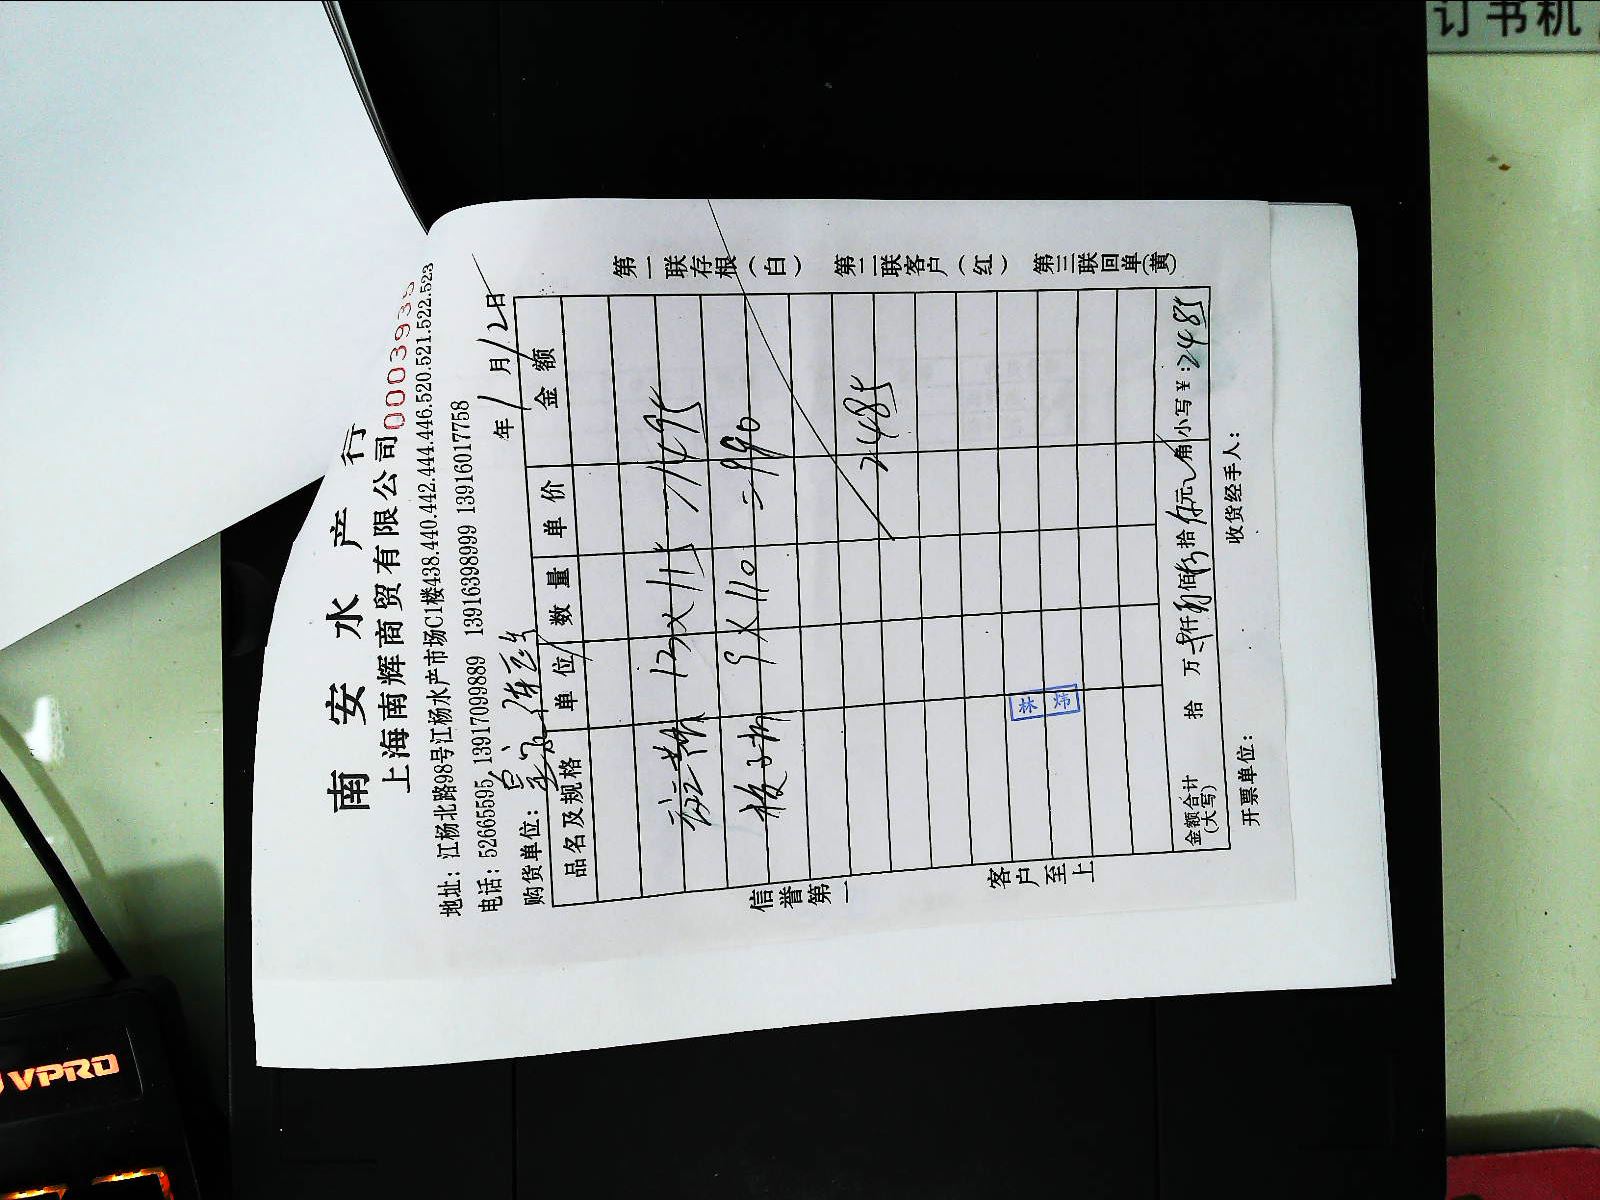 南安水产行
上海南辉商贸有限公司 0003935
地址：江杨北路98号江杨水产市场C1楼438.440.442.444.446.520.521.522.523
电话：52665595 13917099889 13916398999 13916017758
购货单位： 年 1 月 12 日
品名及规格 单位 数量 单价 金额
13×115 =1495
板子虾 9×110 =990
2485
金额合计(大写) 拾 万 仟 佰 拾 伍元 角 小写￥：2485
开票单位： 收货经手人：
信誉第一 客户至上
第一联存根（白） 第二联客户（红） 第三联回单（黄）
林炜
订书机
VPRO